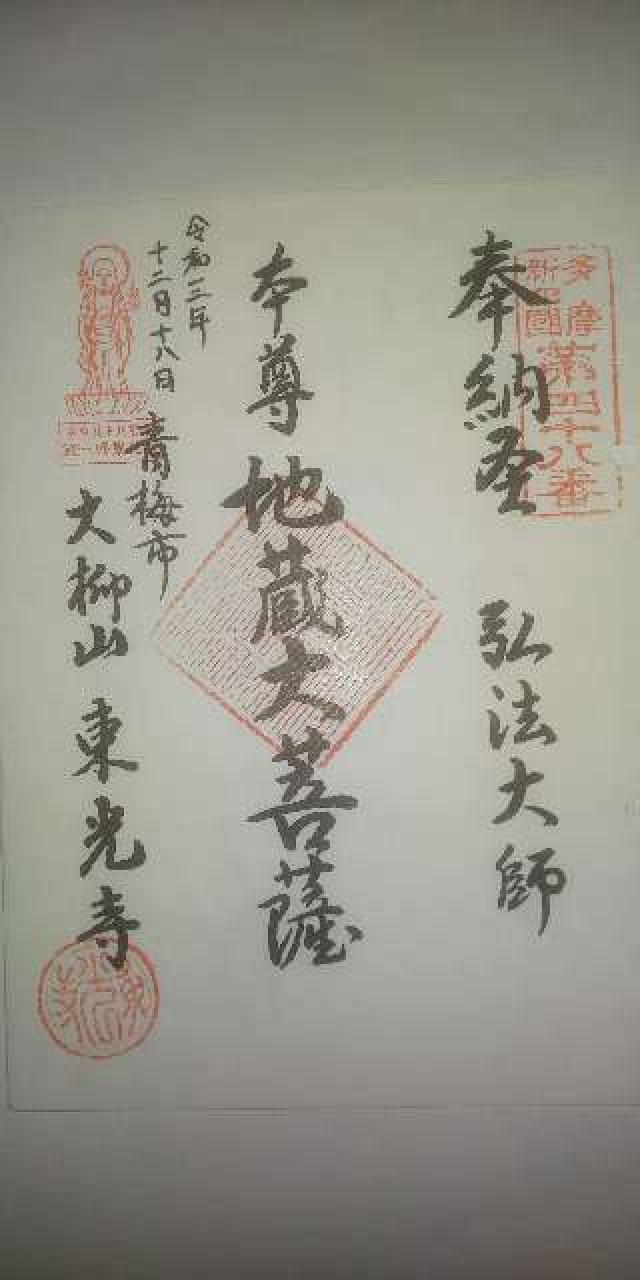 多摩
新四國
第四十八番
奉納圣 弘法大師
本尊 地蔵大菩薩
令和三年
十二月十八日
青梅市
大柳山 東光寺